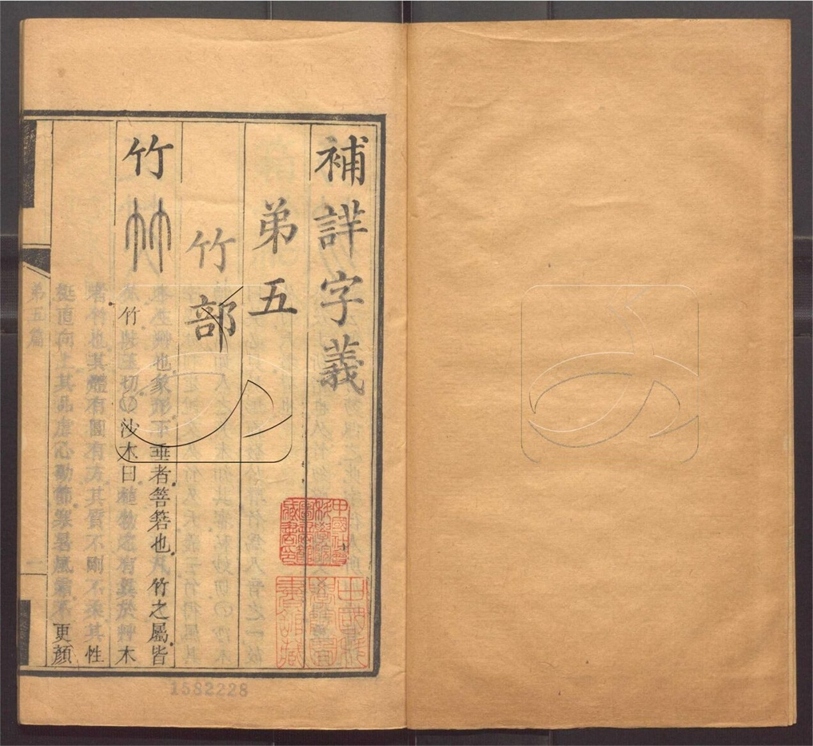 補詳字義
弟五
竹部
竹
冬生艸也象形下垂者箁箬也凡竹之屬皆
从竹陟玉切○沙木曰植物有異於艸木
者竹也其體有圓有方其質不剛不柔其性
挺直向上其品虛心勁節寒暑風霜不更顏
弟五篇
1582228